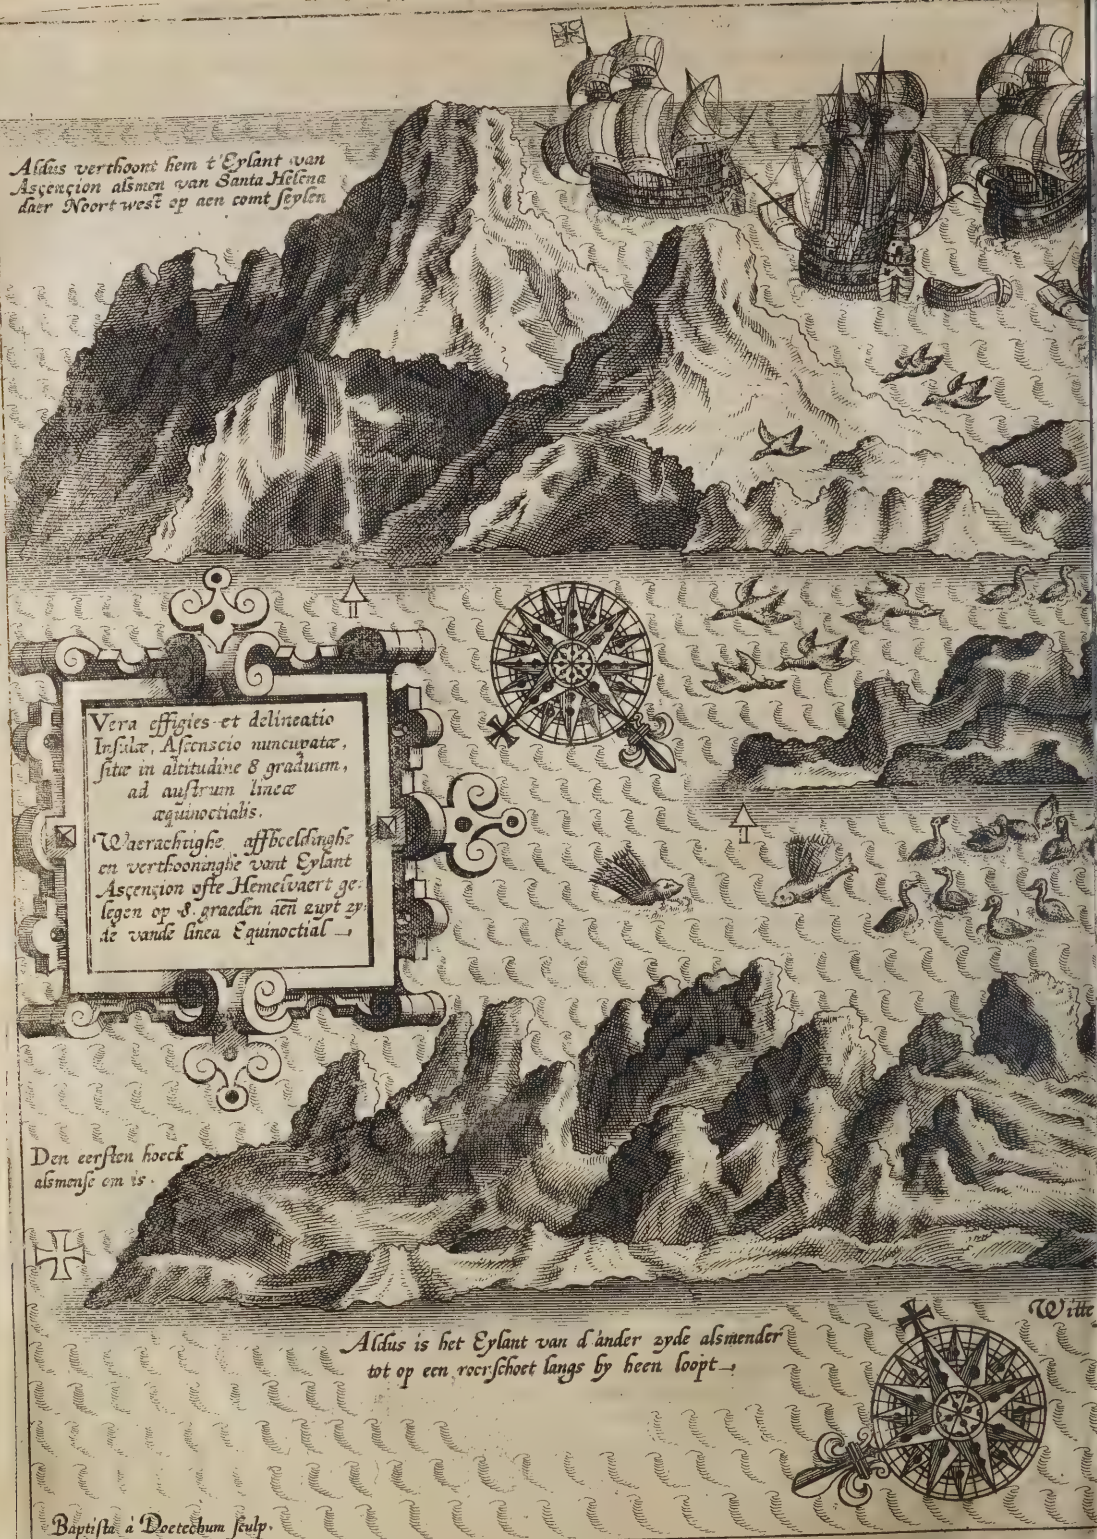 Aldus verthoont hem t'Eylant van
Asçençion alsmen van Santa Helena
daer Noort west op aen comt ſeylen
Vera effigies et delineatio
Inſulæ, Aſcenscio nuncupatæ,
ſitæ in altitudine 8 graduum,
ad auſtrum lineæ
æquinoctialis.
Waerachtighe affbeeldinghe
en verthooninghe vant Eylant
Asçençion ofte Hemelvaert ge:
legen op 8. graeden aen zuyt zy:
de vande linea Equinoctial
Den eerſten hoeck
alsmenſe om is.
Witte
Aldus is het Eylant van d'ander zyde alsmender
tot op een roerſchoet langs by heen loopt
Baptiſta à Doetechum ſculp.